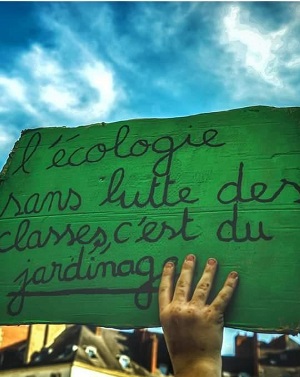 l'écologie
sans lutte des
classes, c'est du
jardinage